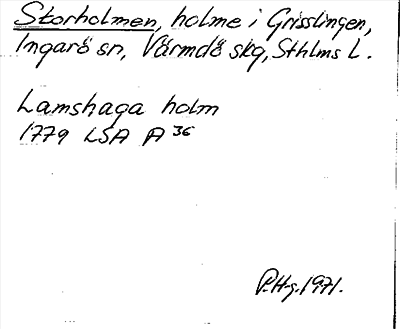 Storholmen, holme i Grisslingen,
Ingarö sn, Värmdö skg, Sthlms L.
Lamshaga holm
1779 LSA A 36
P.H-g. 1971.